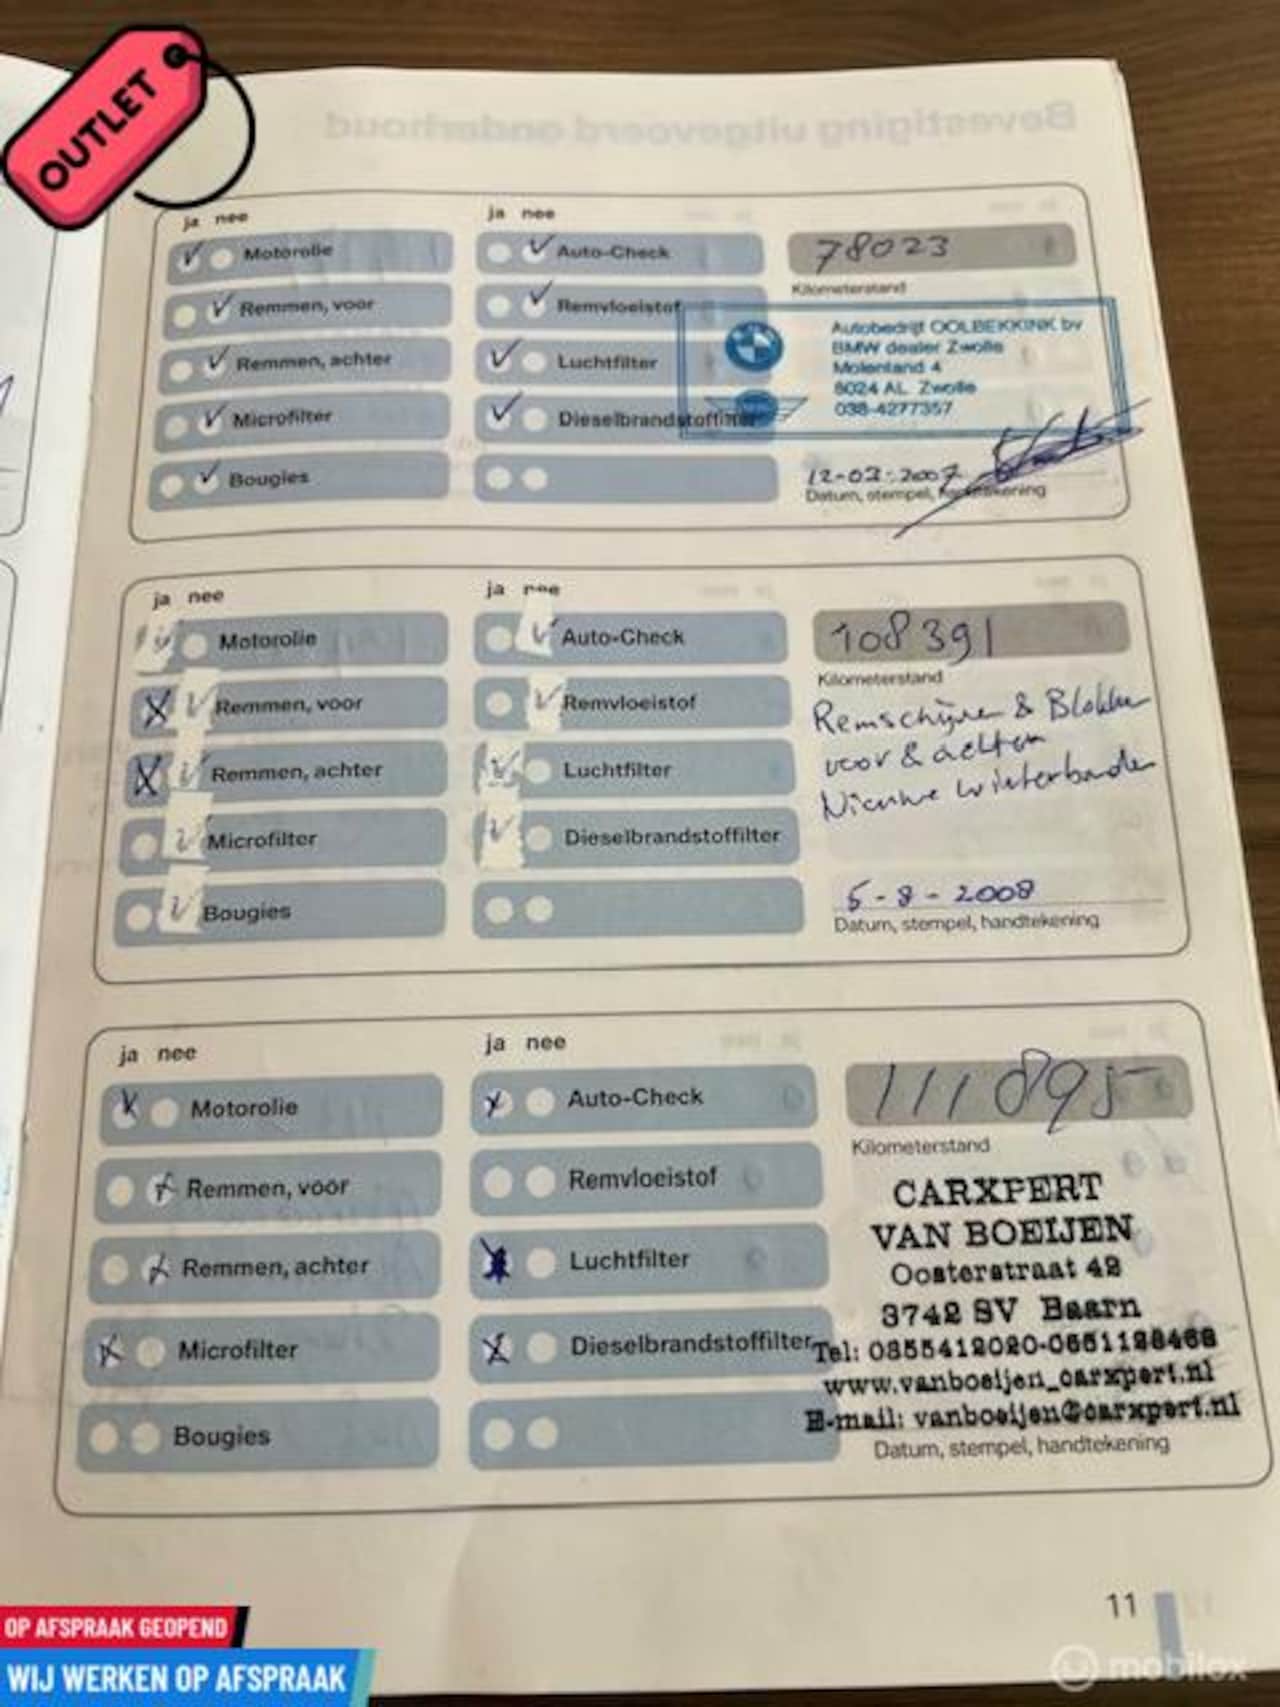 OUTLET
Bevestiging uitgevoerd onderhoud
ja nee
Motorolie
Remmen, voor
Remmen, achter
Microfilter
Bougies
ja nee
Auto-Check
Remvloeistof
Luchtfilter
Dieselbrandstoffilter
78023
Kilometerstand
Autobedrijf OOLBEKKINK bv
BMW dealer Zwolle
Molenland 4
8024 AL Zwolle
038-4277357
12-03-2007
Datum, stempel, handtekening
ja nee
Motorolie
Remmen, voor
Remmen, achter
Microfilter
Bougies
ja nee
Auto-Check
Remvloeistof
Luchtfilter
Dieselbrandstoffilter
108391
Kilometerstand
Remschijven & Blokken
voor & achter
Nieuwe winterbanden
5-8-2008
Datum, stempel, handtekening
ja nee
Motorolie
Remmen, voor
Remmen, achter
Microfilter
Bougies
ja nee
Auto-Check
Remvloeistof
Luchtfilter
Dieselbrandstoffilter
111895
Kilometerstand
CARXPERT
VAN BOEIJEN
Oosterstraat 42
3742 SV Baarn
Tel: 0355412020-0651128468
www.vanboeijen_carxpert.nl
E-mail: vanboeijen@carxpert.nl
Datum, stempel, handtekening
11
OP AFSPRAAK GEOPEND
WIJ WERKEN OP AFSPRAAK
mobilox